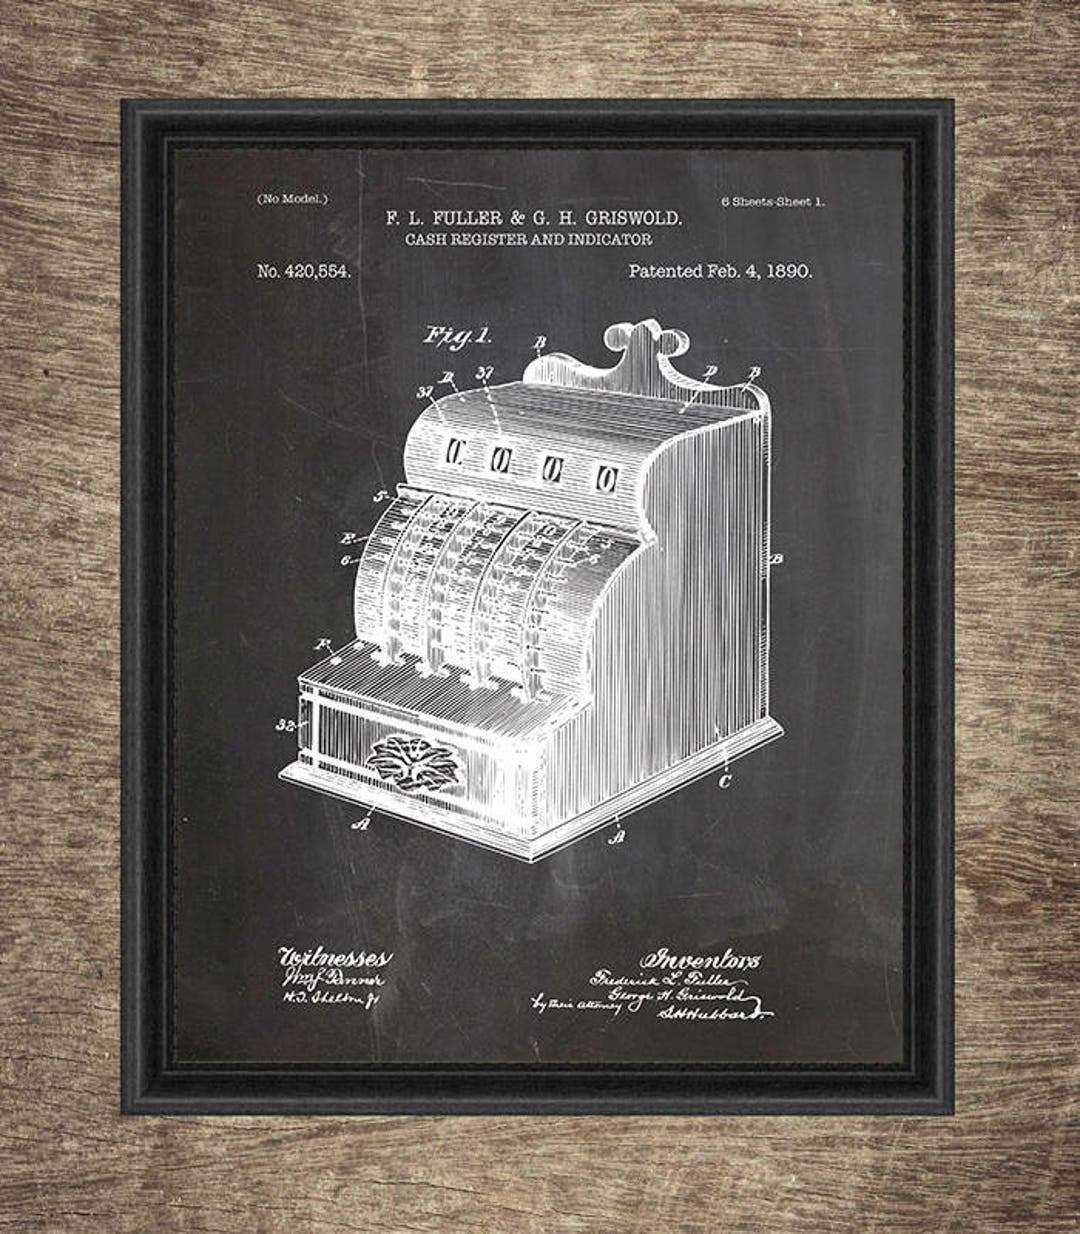 (No Model.)
6 Sheets-Sheet 1.
F. L. FULLER & G. H. GRISWOLD.
CASH REGISTER AND INDICATOR
No. 420,554.
Patented Feb. 4, 1890.
Fig. 1.
B
37
B
D
B
37
0 0 0
5
E
6
B
F
32
C
A
A
Witnesses
Inventors
Frederick L. Fuller
H. T. Shelton Jr
George H. Griswold
by their attorney
S. H. Hubbard.